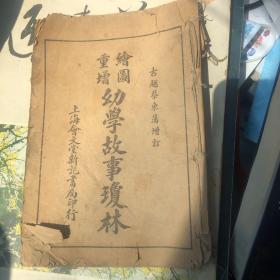 古越蔡東藩增訂
繪圖
重增
幼學故事瓊林
上海會文堂新記書局印行